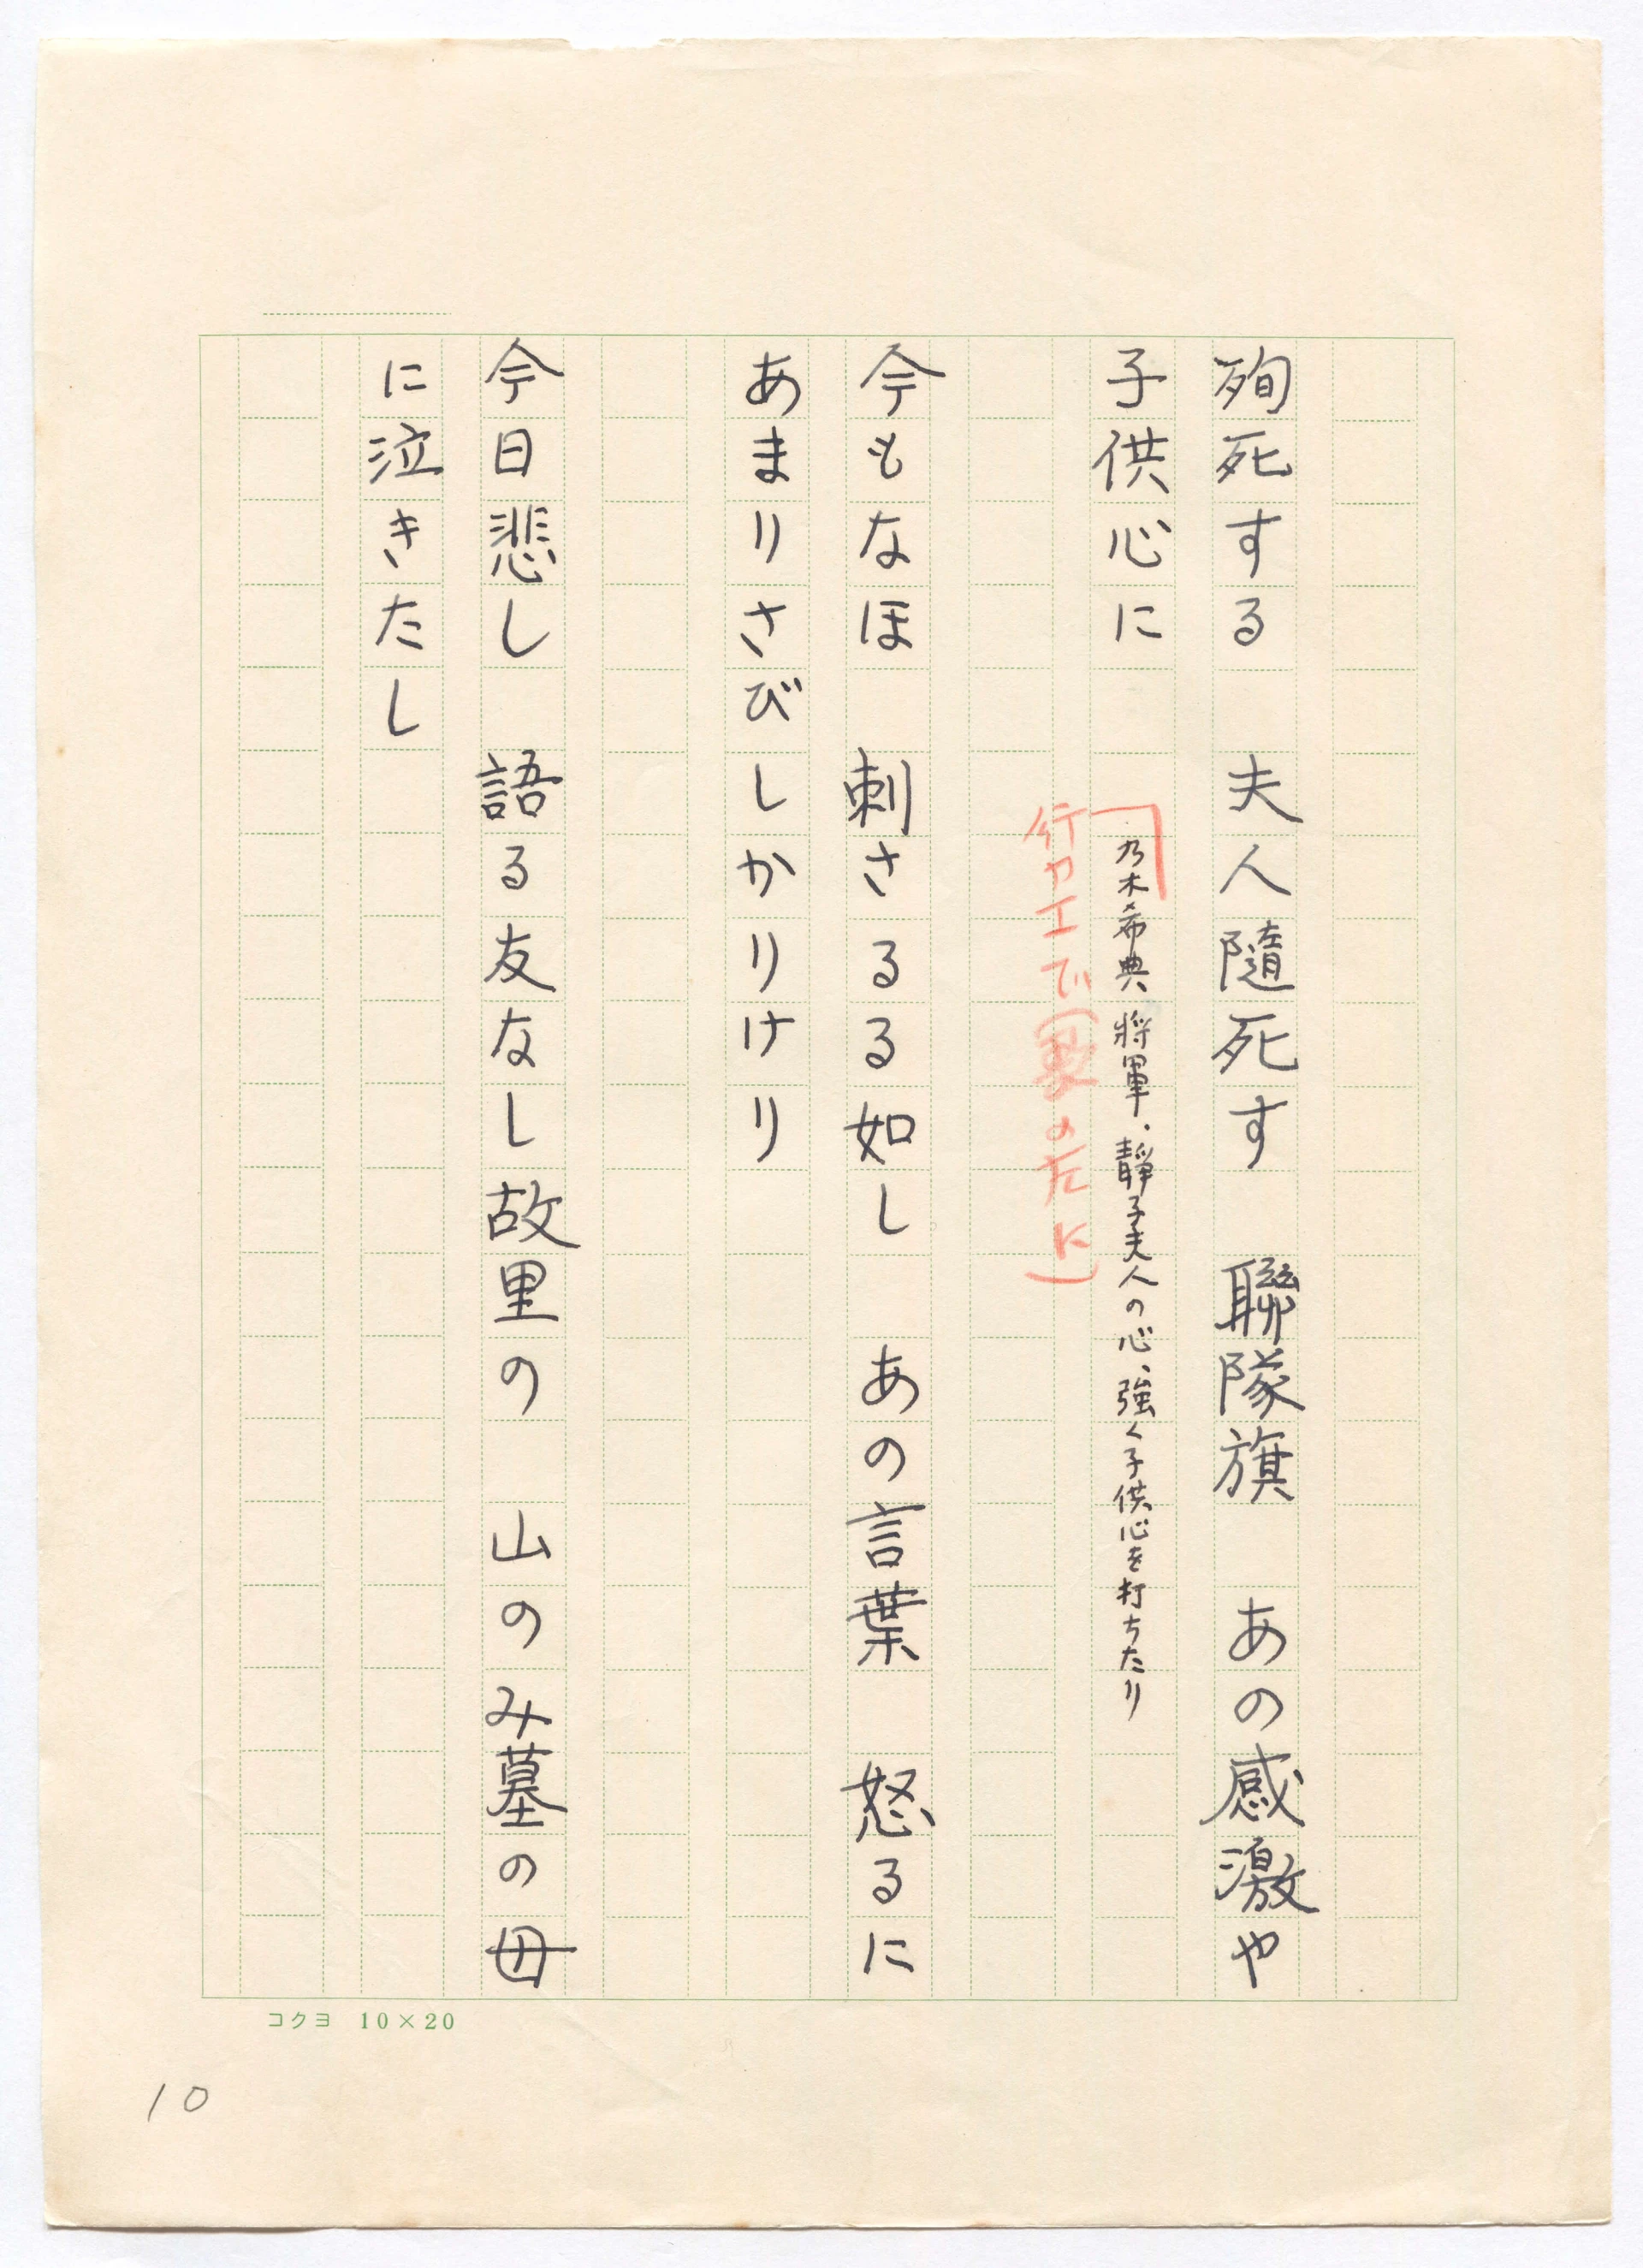 殉死する　夫人隨死す　聯隊旗　あの感激や
子供心に
乃木希典将軍、静子夫人の心、強く子供心を打ちたり
行カエで(裏のたに)
今もなほ　刺さるる如し　あの言葉　怒るに
あまりさびしかりけり
今日悲し　語る友なし故里の　山のみ墓の母
に泣きたし
コクヨ 10×20
10